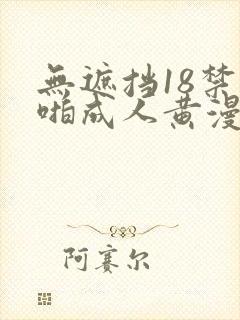 無遮挡18禁
啪成人黄漫
阿赛尔